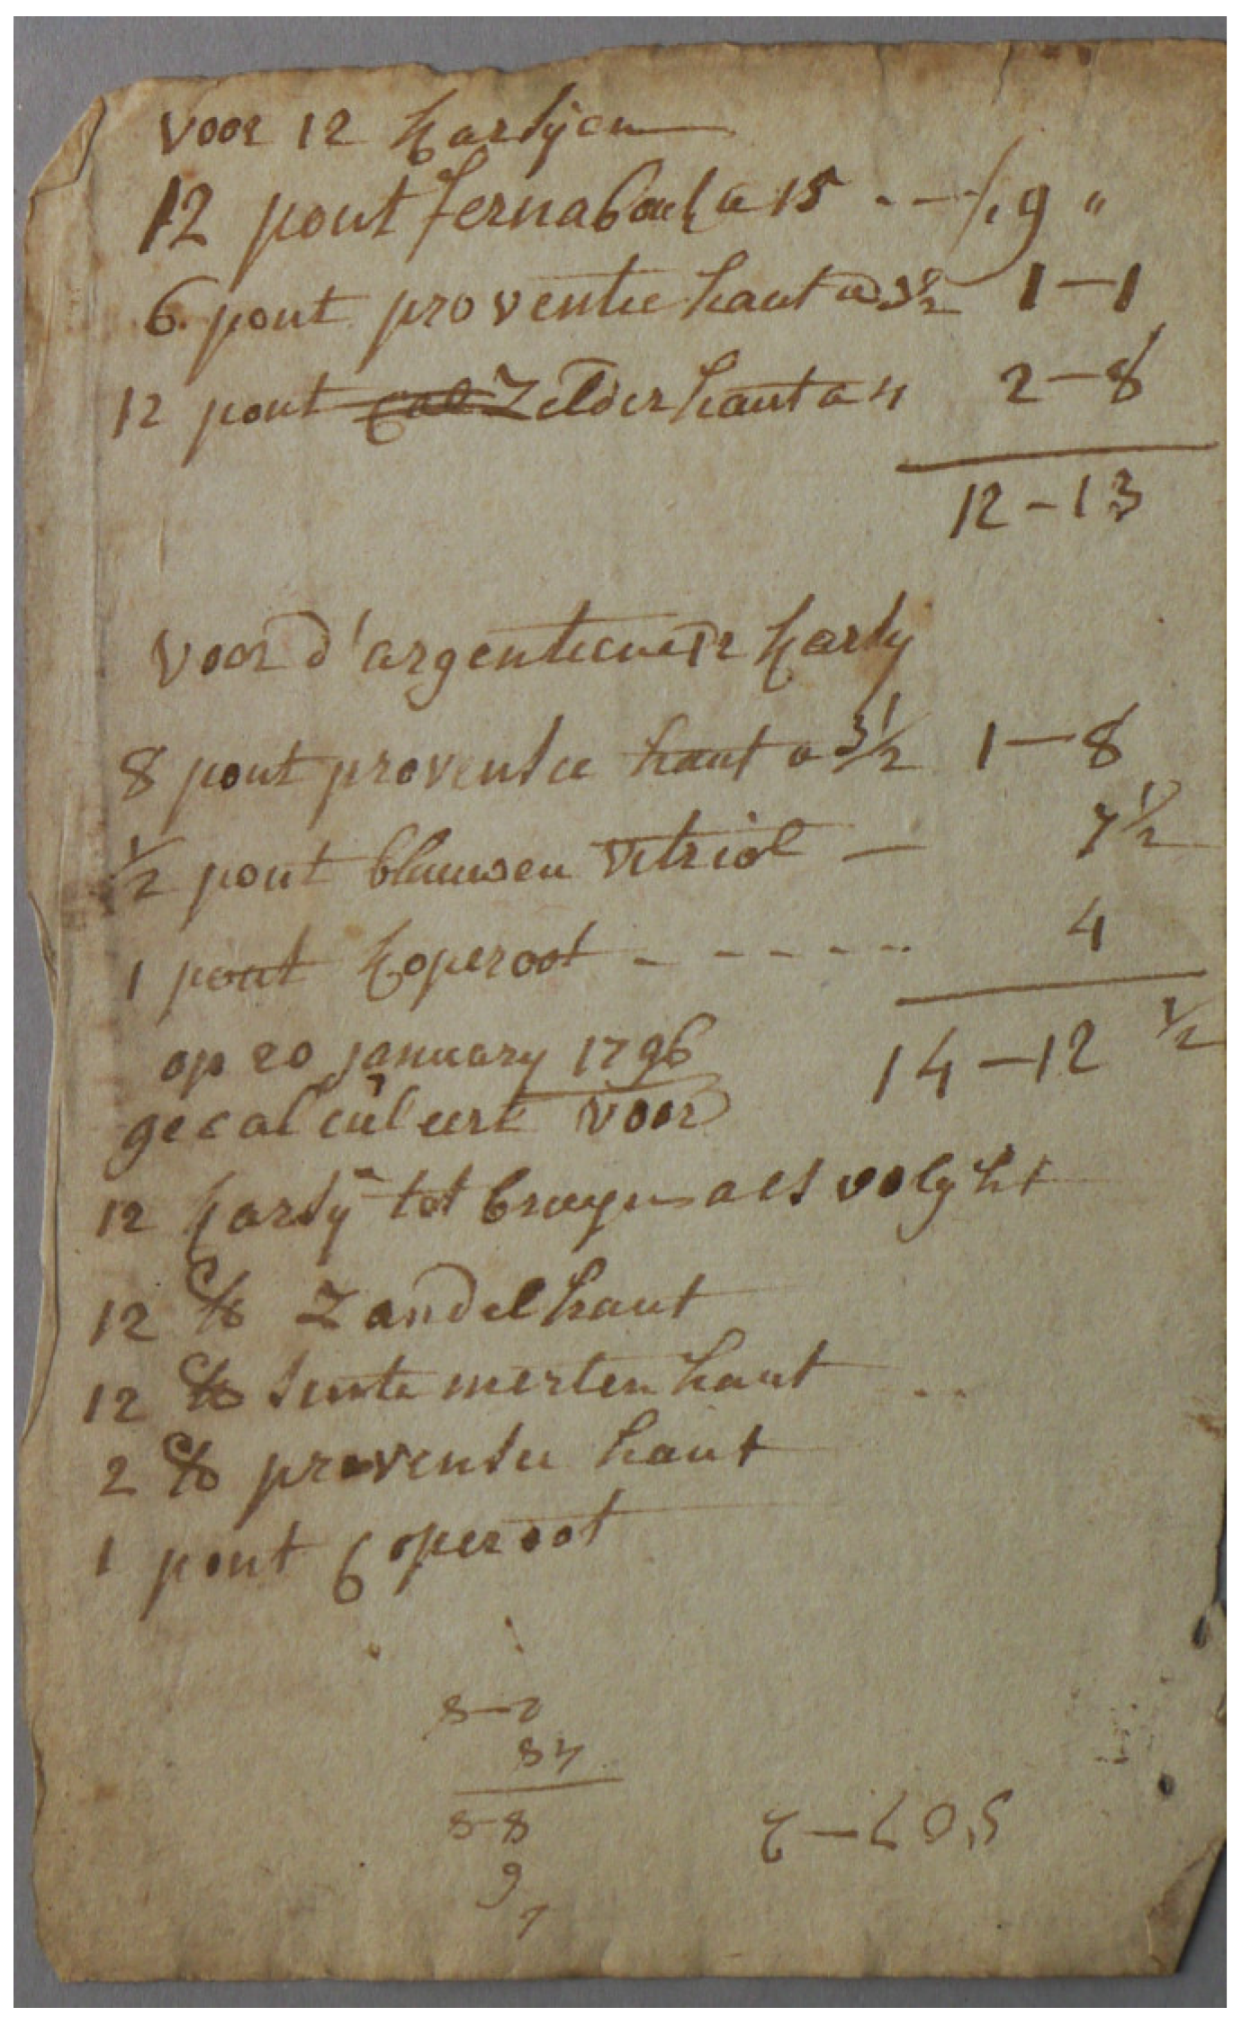 Voor 12 karsijen
12 pont fernabouk a 15 - - - 9 "
6 pont proventie haut a 3½ 1 - 1
12 pont Zelder haut a 4 2 - 8
12 - 13
Voor d'argentiene karsy
8 pont proventie haut a 3½ 1 - 8
½ pont blauwen vitriol - 7½
1 pont koperoot - - - - - 4
14 - 12 ½
op 20 january 1796
gecalculeert voor
12 karsy tot bruyn als volght
12 Zandelhaut
12 sinte merten haut
2 proventie haut
1 pont coperoot
8-8
9
7